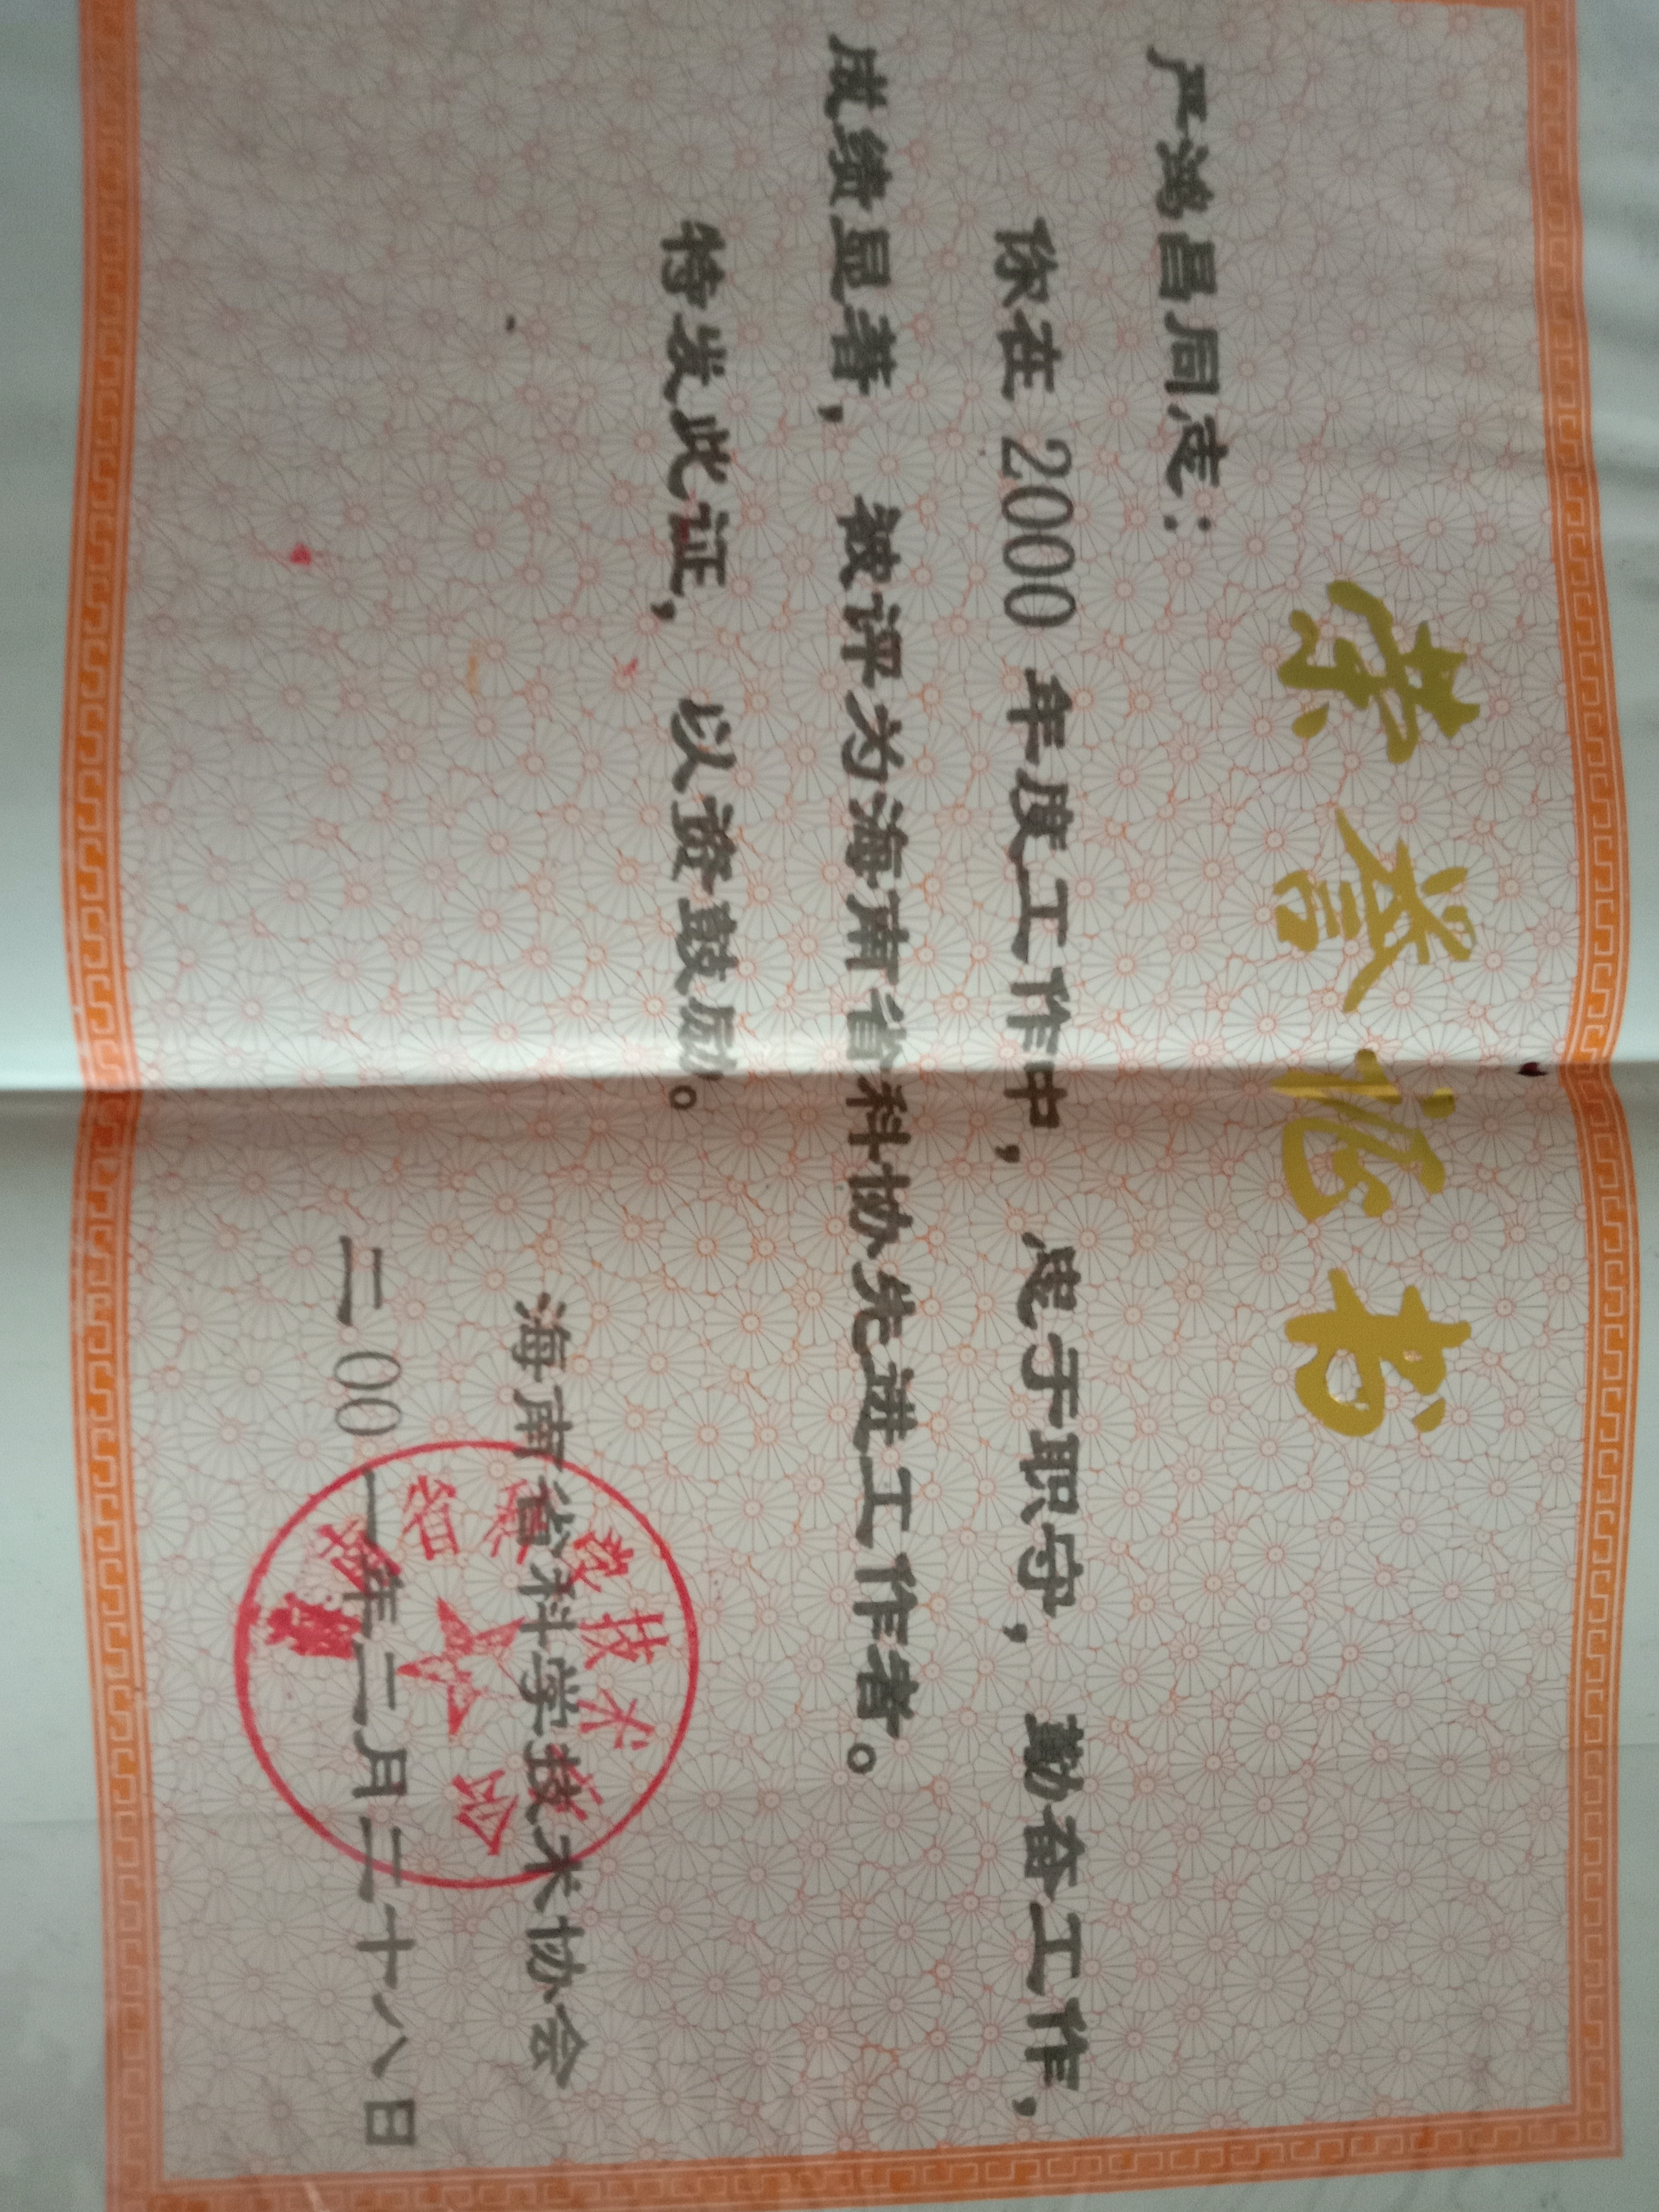 荣誉证书
严鸿昌同志：
你在2000年度工作中，忠于职守，勤奋工作，
成绩显著，被评为海南省科协先进工作者。
特发此证，以资鼓励。
海南省科学技术协会
二00一年二月二十八日
海南省科学技术协会